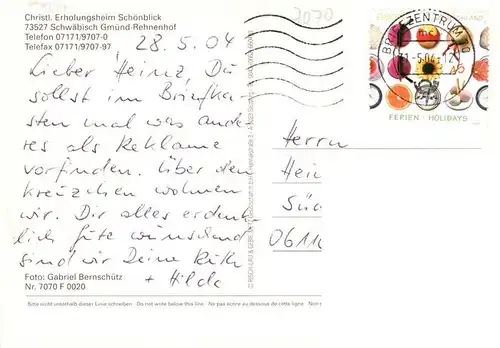 Christl. Erholungsheim Schönblick
73527 Schwäbisch Gmünd-Rehnenhof
Telefon 07171/9707-0
Telefax 07171/9707-97
28.5.04
Lieber Heinz, Du
sollst im Briefka-
sten mal was ande-
res als Reklame
vorfinden. Über den
Kreuzchen wohnen
wir. Dir alles erdenk-
lich Gute wünschend
sind wir Deine Ruth
+ Hilde
Foto: Gabriel Bernschütz
Nr. 7070 F 0020
Bitte nicht unterhalb dieser Linie schreiben Do not write below this line. Ne pas écrire au dessous de cette ligne. Not
7070
BRIEFZENTRUM
FERIEN · HOLIDAYS
Herrn
Hein
Süd
0611